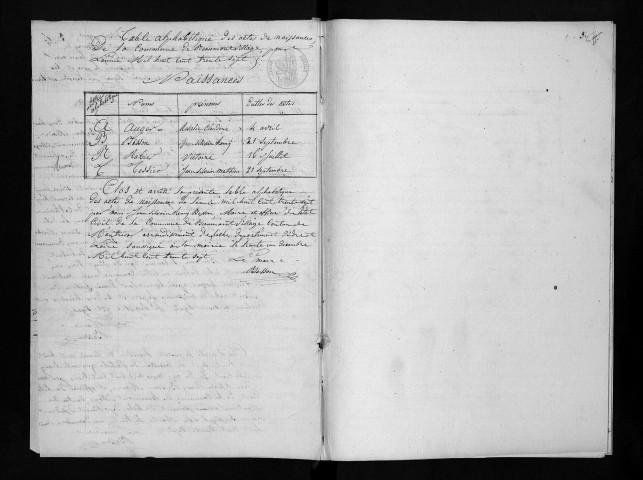 Table alphabétique des actes de naissances
De la Commune de Beaumont Village pour
L'année Mil huit cent trente sept
Naissances
Noms prénoms Dattes des actes
A Auger Cléentine 4 avril
B Besson Jean Silvain Henry 21 Septembre
R Victoire 16 Juillet
T Tessier Jean Silvain Mathieu 21 septembre
Clos et arrêté la présente table alphabétique
des actes de naissances de l'année mil huit cent trente sept
par nous Jean Silvain Henry Besson Maire et officier de l'état
Civil de la Commune de Beaumont Village Canton de
Montrésor arrondissement de Loches Département d'Indre et
Loire Soussigné à la mairie le trente un decembre
Mil huit cent trente sept.
Le maire
Besson